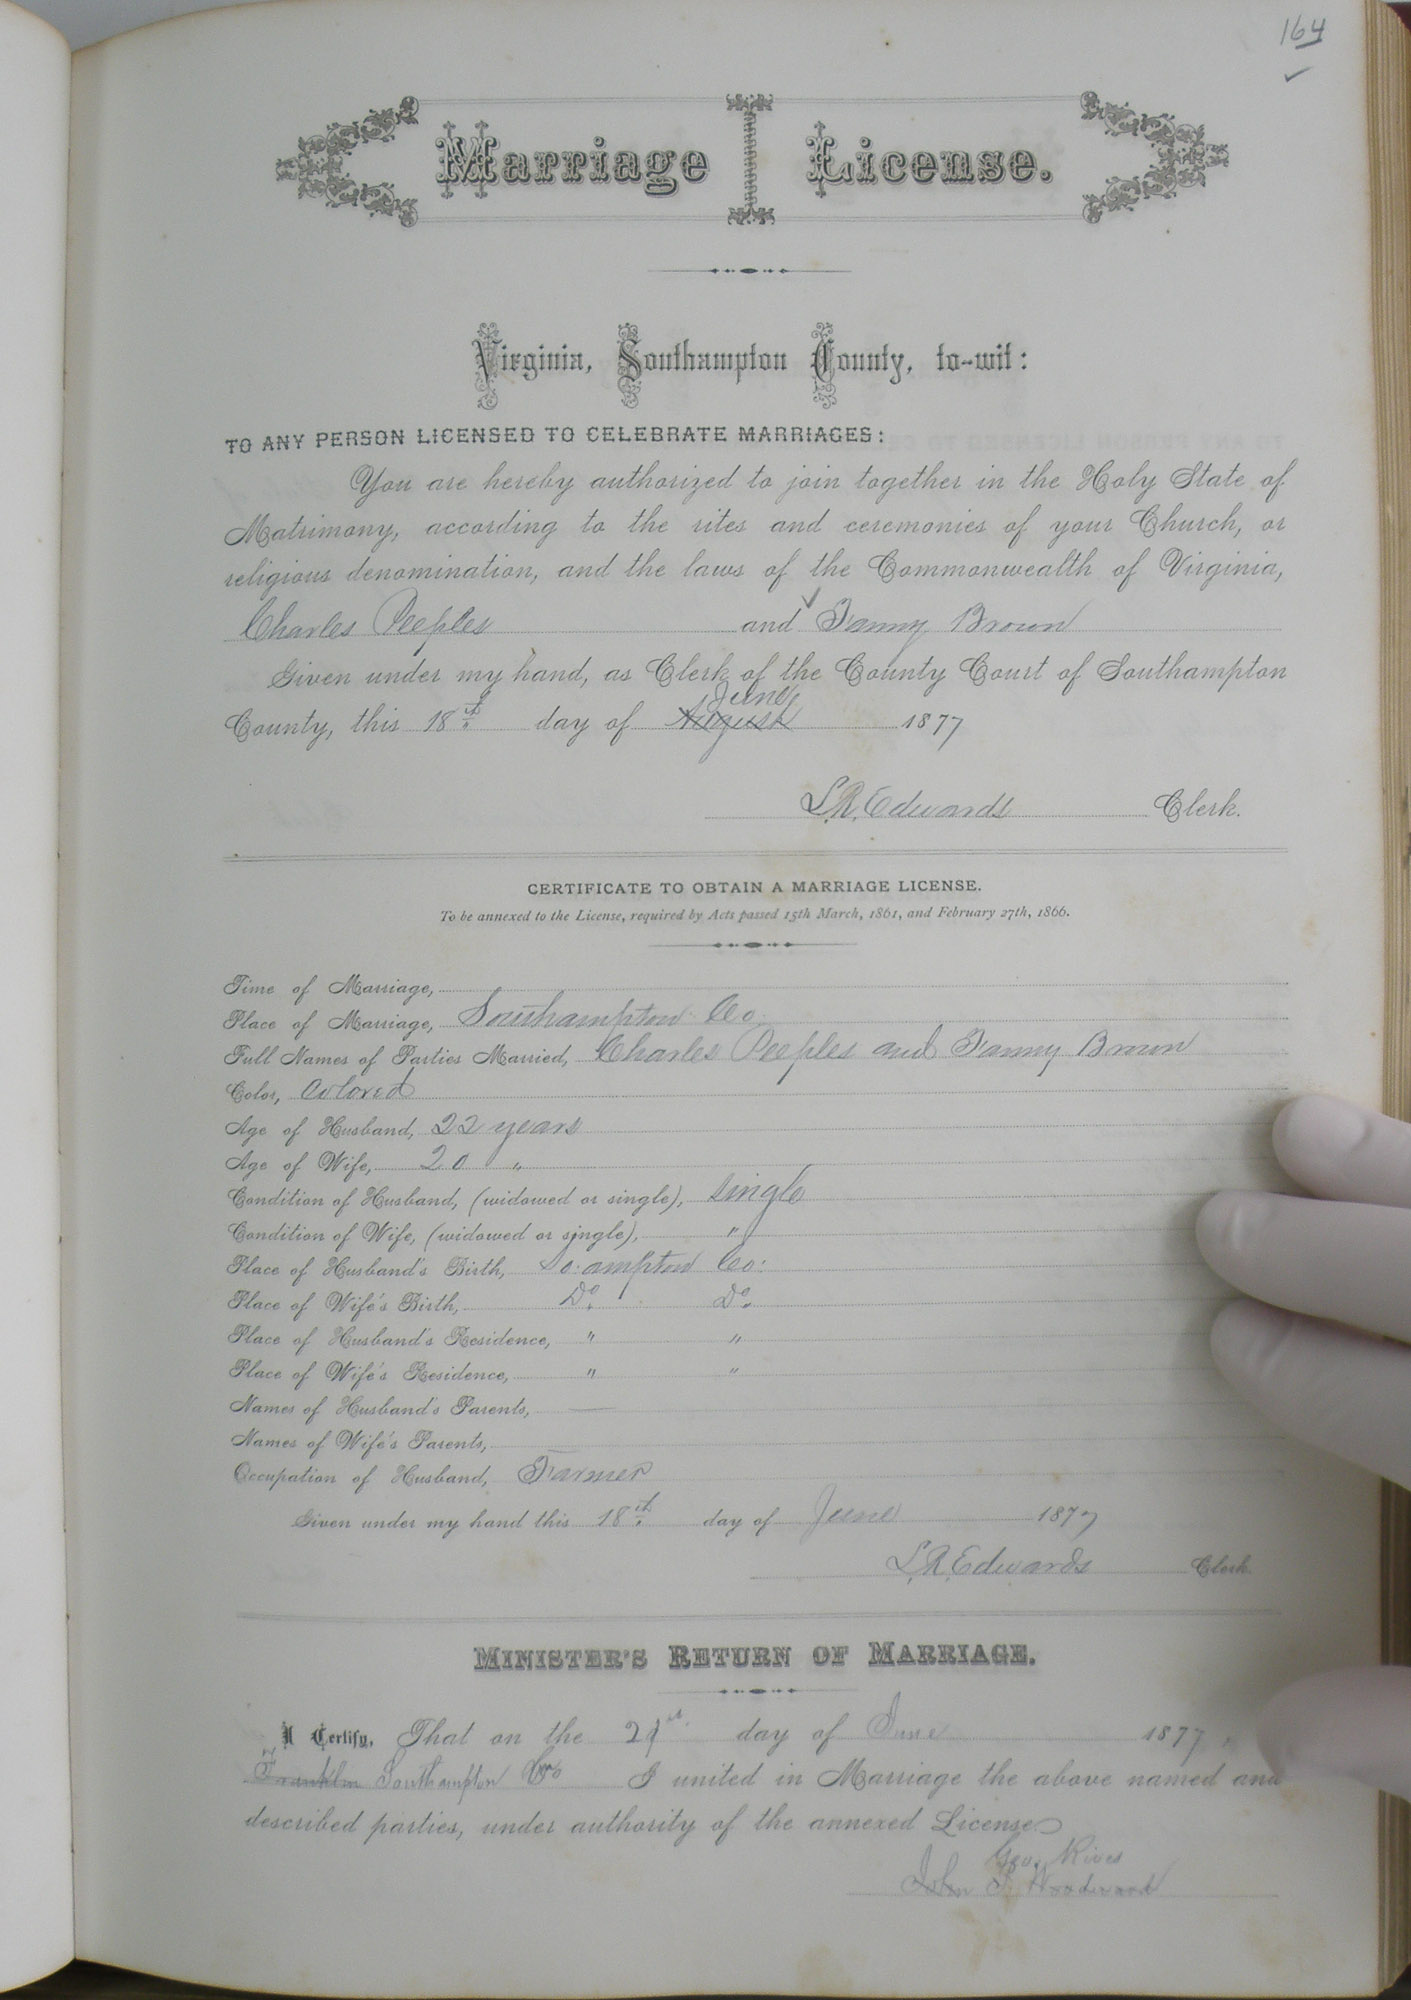 164
Marriage License.
Virginia, Southampton County, to-wit:
TO ANY PERSON LICENSED TO CELEBRATE MARRIAGES:
You are hereby authorized to join together in the Holy State of
Matrimony, according to the rites and ceremonies of your Church, or
religious denomination, and the laws of the Commonwealth of Virginia,
Charles Peeples and Fanny Brown
Given under my hand, as Clerk of the County Court of Southampton
June
County, this 18th day of August 1877
L.R. Edwards Clerk.
CERTIFICATE TO OBTAIN A MARRIAGE LICENSE.
To be annexed to the License, required by Acts passed 15th March, 1861, and February 27th, 1866.
Time of Marriage,
Place of Marriage, Southampton Co.
Full Names of Parties Married, Charles Peeples and Fanny Brown
Color, Colored
Age of Husband, 22 years
Age of Wife, 20 "
Condition of Husband, (widowed or single), Single
Condition of Wife, (widowed or single), "
Place of Husband's Birth, So:ampton Co:
Place of Wife's Birth, Do. Do.
Place of Husband's Residence, " "
Place of Wife's Residence, " "
Names of Husband's Parents, —
Names of Wife's Parents,
Occupation of Husband, Farmer
Given under my hand this 18th day of June 1877
L.R. Edwards Clerk
MINISTER'S RETURN OF MARRIAGE.
I Certify, That on the 21st day of June 1877,
Franklin Southampton Co I united in Marriage the above named and
described parties, under authority of the annexed License
Geo. Rives
John F. Woodward